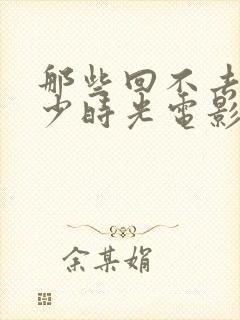 那些回不去
少时光电影
余某娟